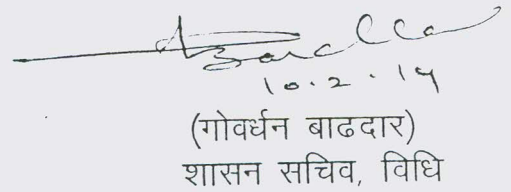 10.2.14
(गोवर्धन बाढदार)
शासन सचिव, विधि